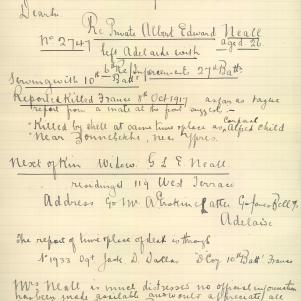 Dear
Re Private Albert Edward Neall
No 2747 aged 26.
left Adelaide with
6th Reinforcement 27th Batt.
Serving with 10th Batt.
Reported Killed France 8th Oct 1917 as far as vague
report from a mate at the post suggest -
"Killed by shell at same time & place as Corporal Alfred Child
"Near Zonnebeke, near Ypres.
Next of Kin Widow G L E Neall
residing at 119 West Terrace
Address C/o Mr A Erskine
Adelaide
The report of time & place of death is through
No 1933 Jack D "D Coy 10th Batt" France
Mrs Neall is much distressed no official information
has been made available and would appreciate all